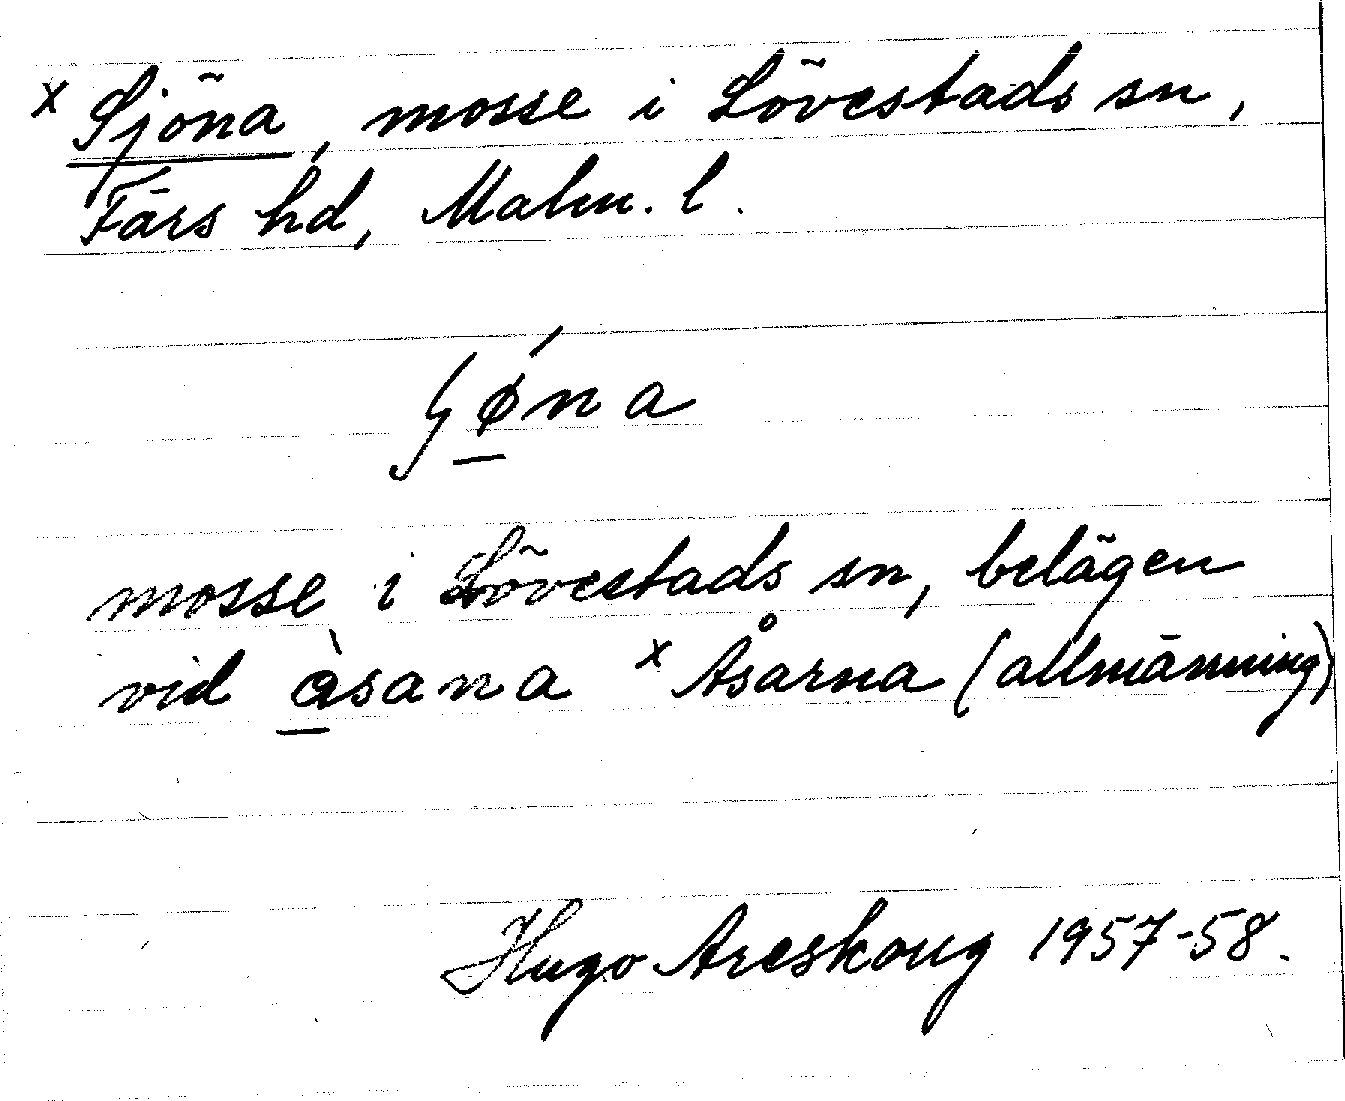 x Sjöna, mosse i Lövestads sn,
Färs hd, Malm. l.
ʃǿna
mosse i Lövestads sn, belägen
vid àsana x Åsarna (allmänning)
Hugo Areskoug 1957-58.